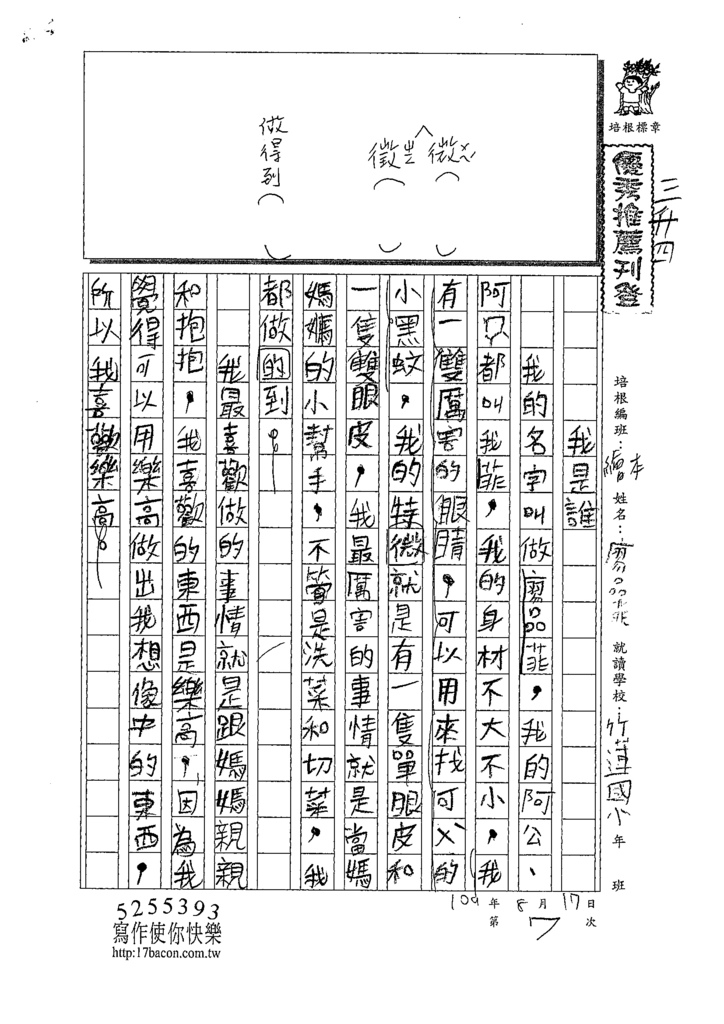 培根標章
優秀推薦刊登
三升四
微ㄨㄟ
徵ㄓ
做得到
培根編班：繪本 姓名：廖品菲 就讀學校：竹蓮國小 年 班
我是誰
我的名字叫做廖品菲，我的阿公、
阿ㄇㄚ都叫我菲，我的身材不大不小，我
有一雙厲害的眼睛，可以用來找可ㄨˋ的
小黑蚊，我的特微就是有一隻單眼皮和
一隻雙眼皮，我最厲害的事情就是當媽
媽媽的小幫手，不管是洗菜和切菜，我
都做的到。
我最喜歡做的事情就是跟媽媽親親
和抱抱，我喜歡的東西是樂高，因為我
覺得可以用樂高做出我想像中的東西，
所以我喜歡樂高。
109年8月17日
第7次
5255393
寫作使你快樂
http:17bacon.com.tw